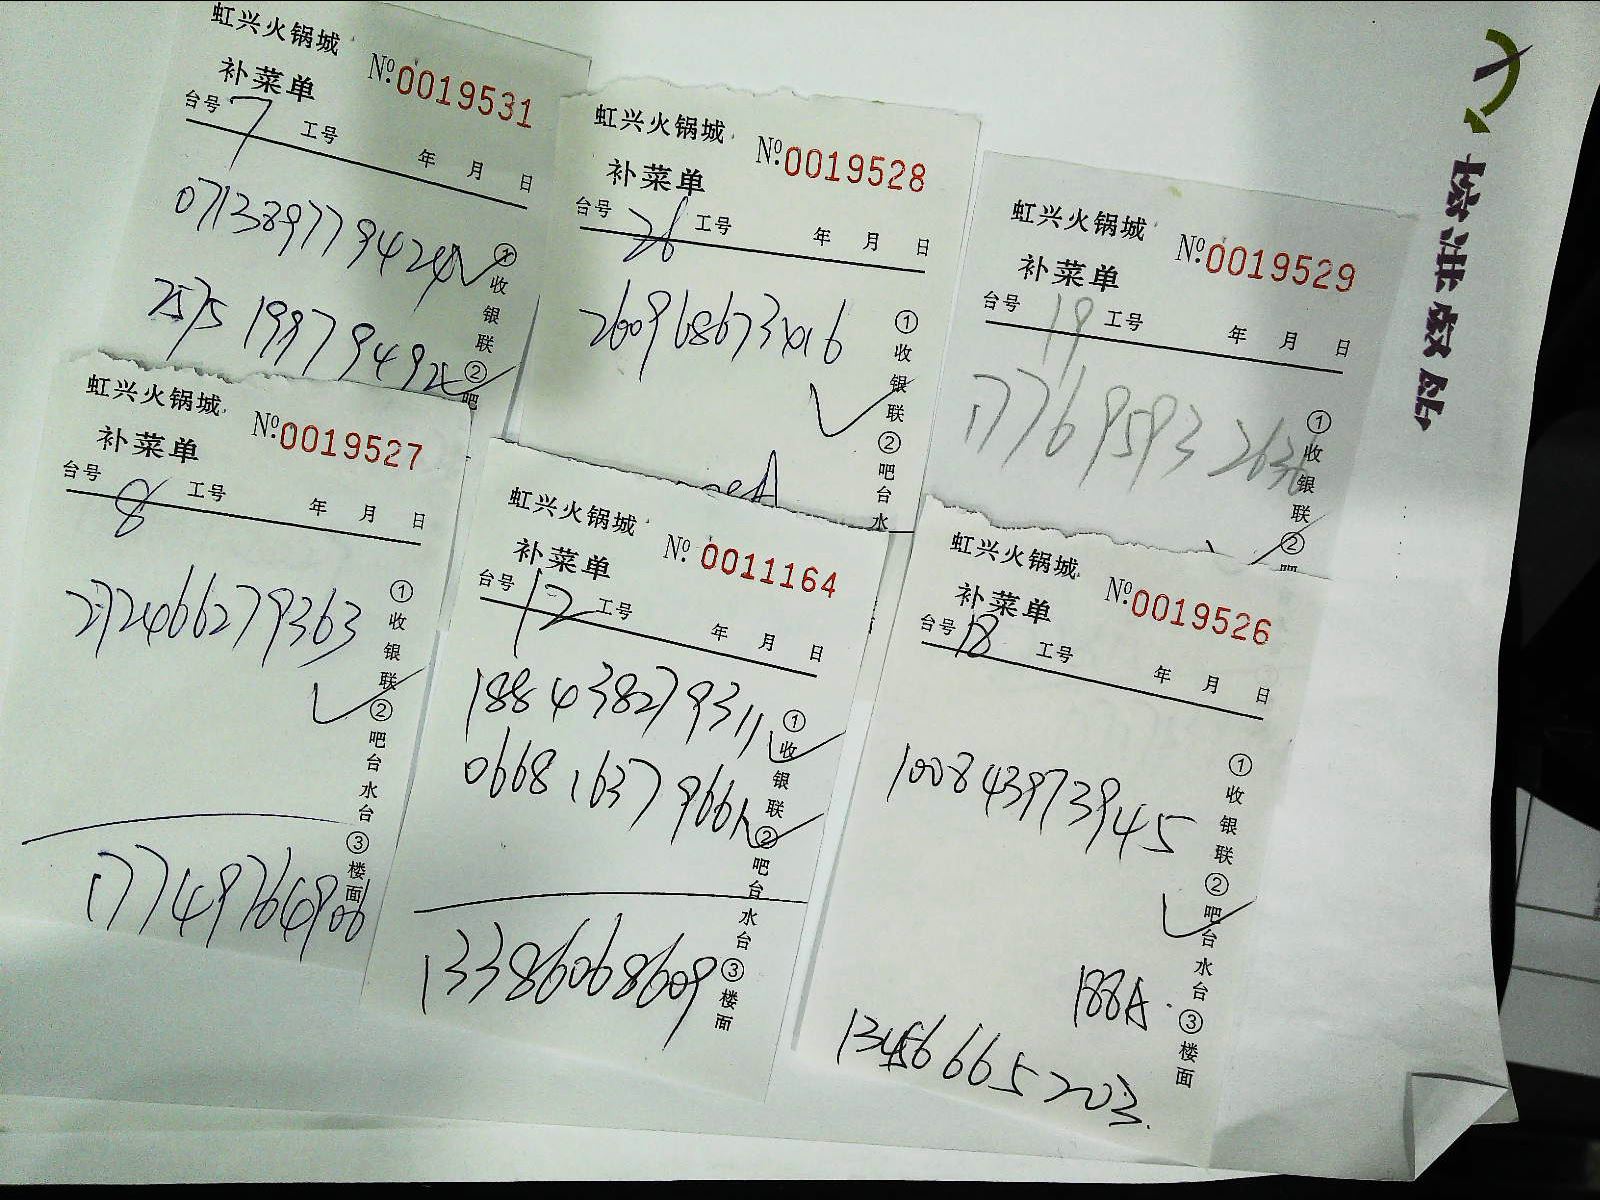 虹兴火锅城
补菜单
№:0019531
台号 7 工号
年 月 日
071389779424
2575 19979492
①收银联②吧
虹兴火锅城
补菜单
№:0019528
台号 26 工号
年 月 日
①收银联②吧台水
虹兴火锅城
补菜单
№:0019529
台号 19 工号
年 月 日
177695932636
①收银联②吧
虹兴火锅城
补菜单
№:0019527
台号 8 工号
年 月 日
272466279363
17749764906
①收银联②吧台水台③楼面
虹兴火锅城
补菜单
№: 0011164
台号 12 工号
年 月 日
188438279311
13386068609
①收银联②吧台水台③楼面
虹兴火锅城
补菜单
№:0019526
台号 18 工号
年 月 日
100843973945
188A.
13456665203.
①收银联②吧台水台③楼面